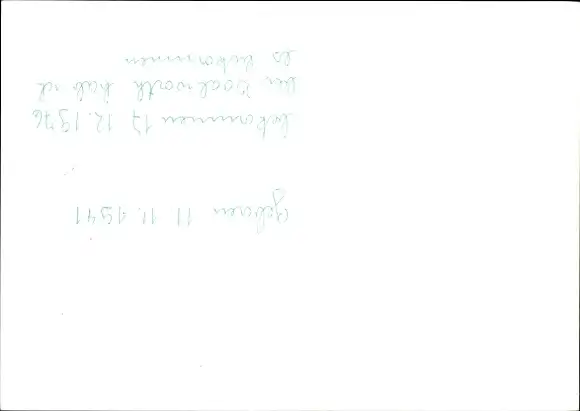 geboren 11.11.1941
bekommen 17 12.1976
bei Woolworth hab ich
es bekommen